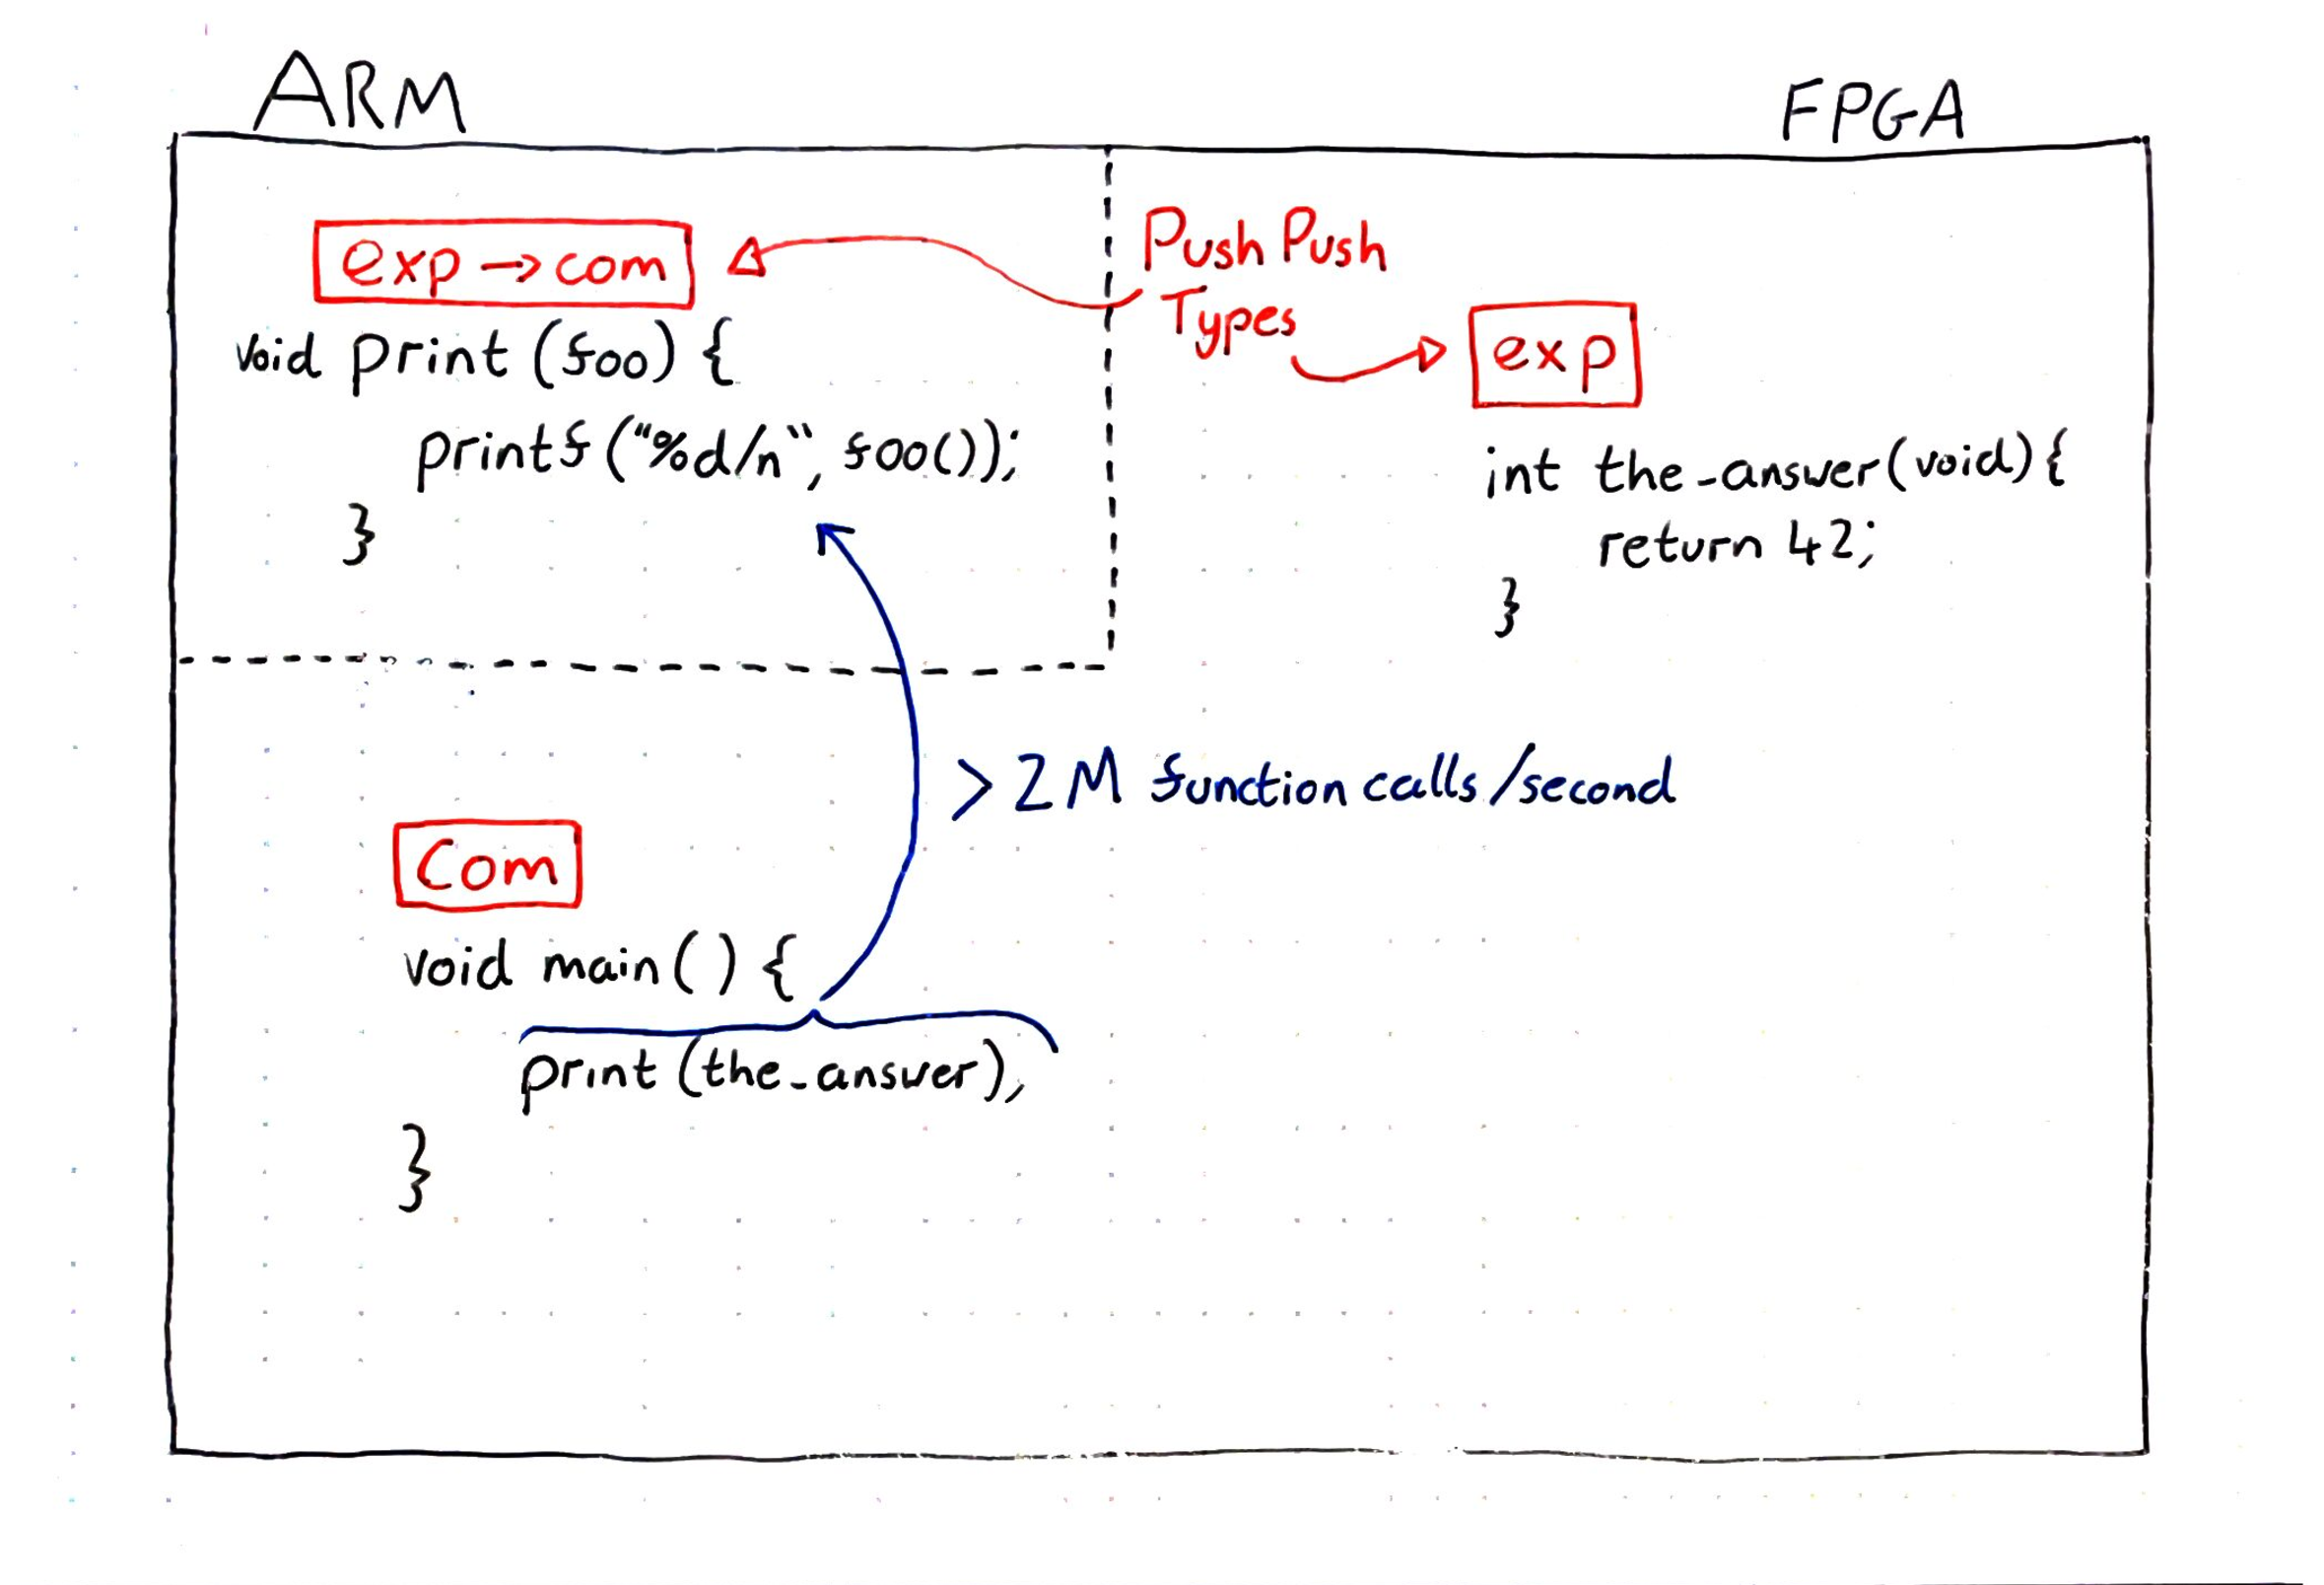 ARM
FPGA
exp → com
void print (foo) {
printf ("%d/n", foo());
}
Push Push
Types
exp
int the_answer(void){
return 42;
}
> 2M function calls/second
Com
void main() {
print (the_answer),
}